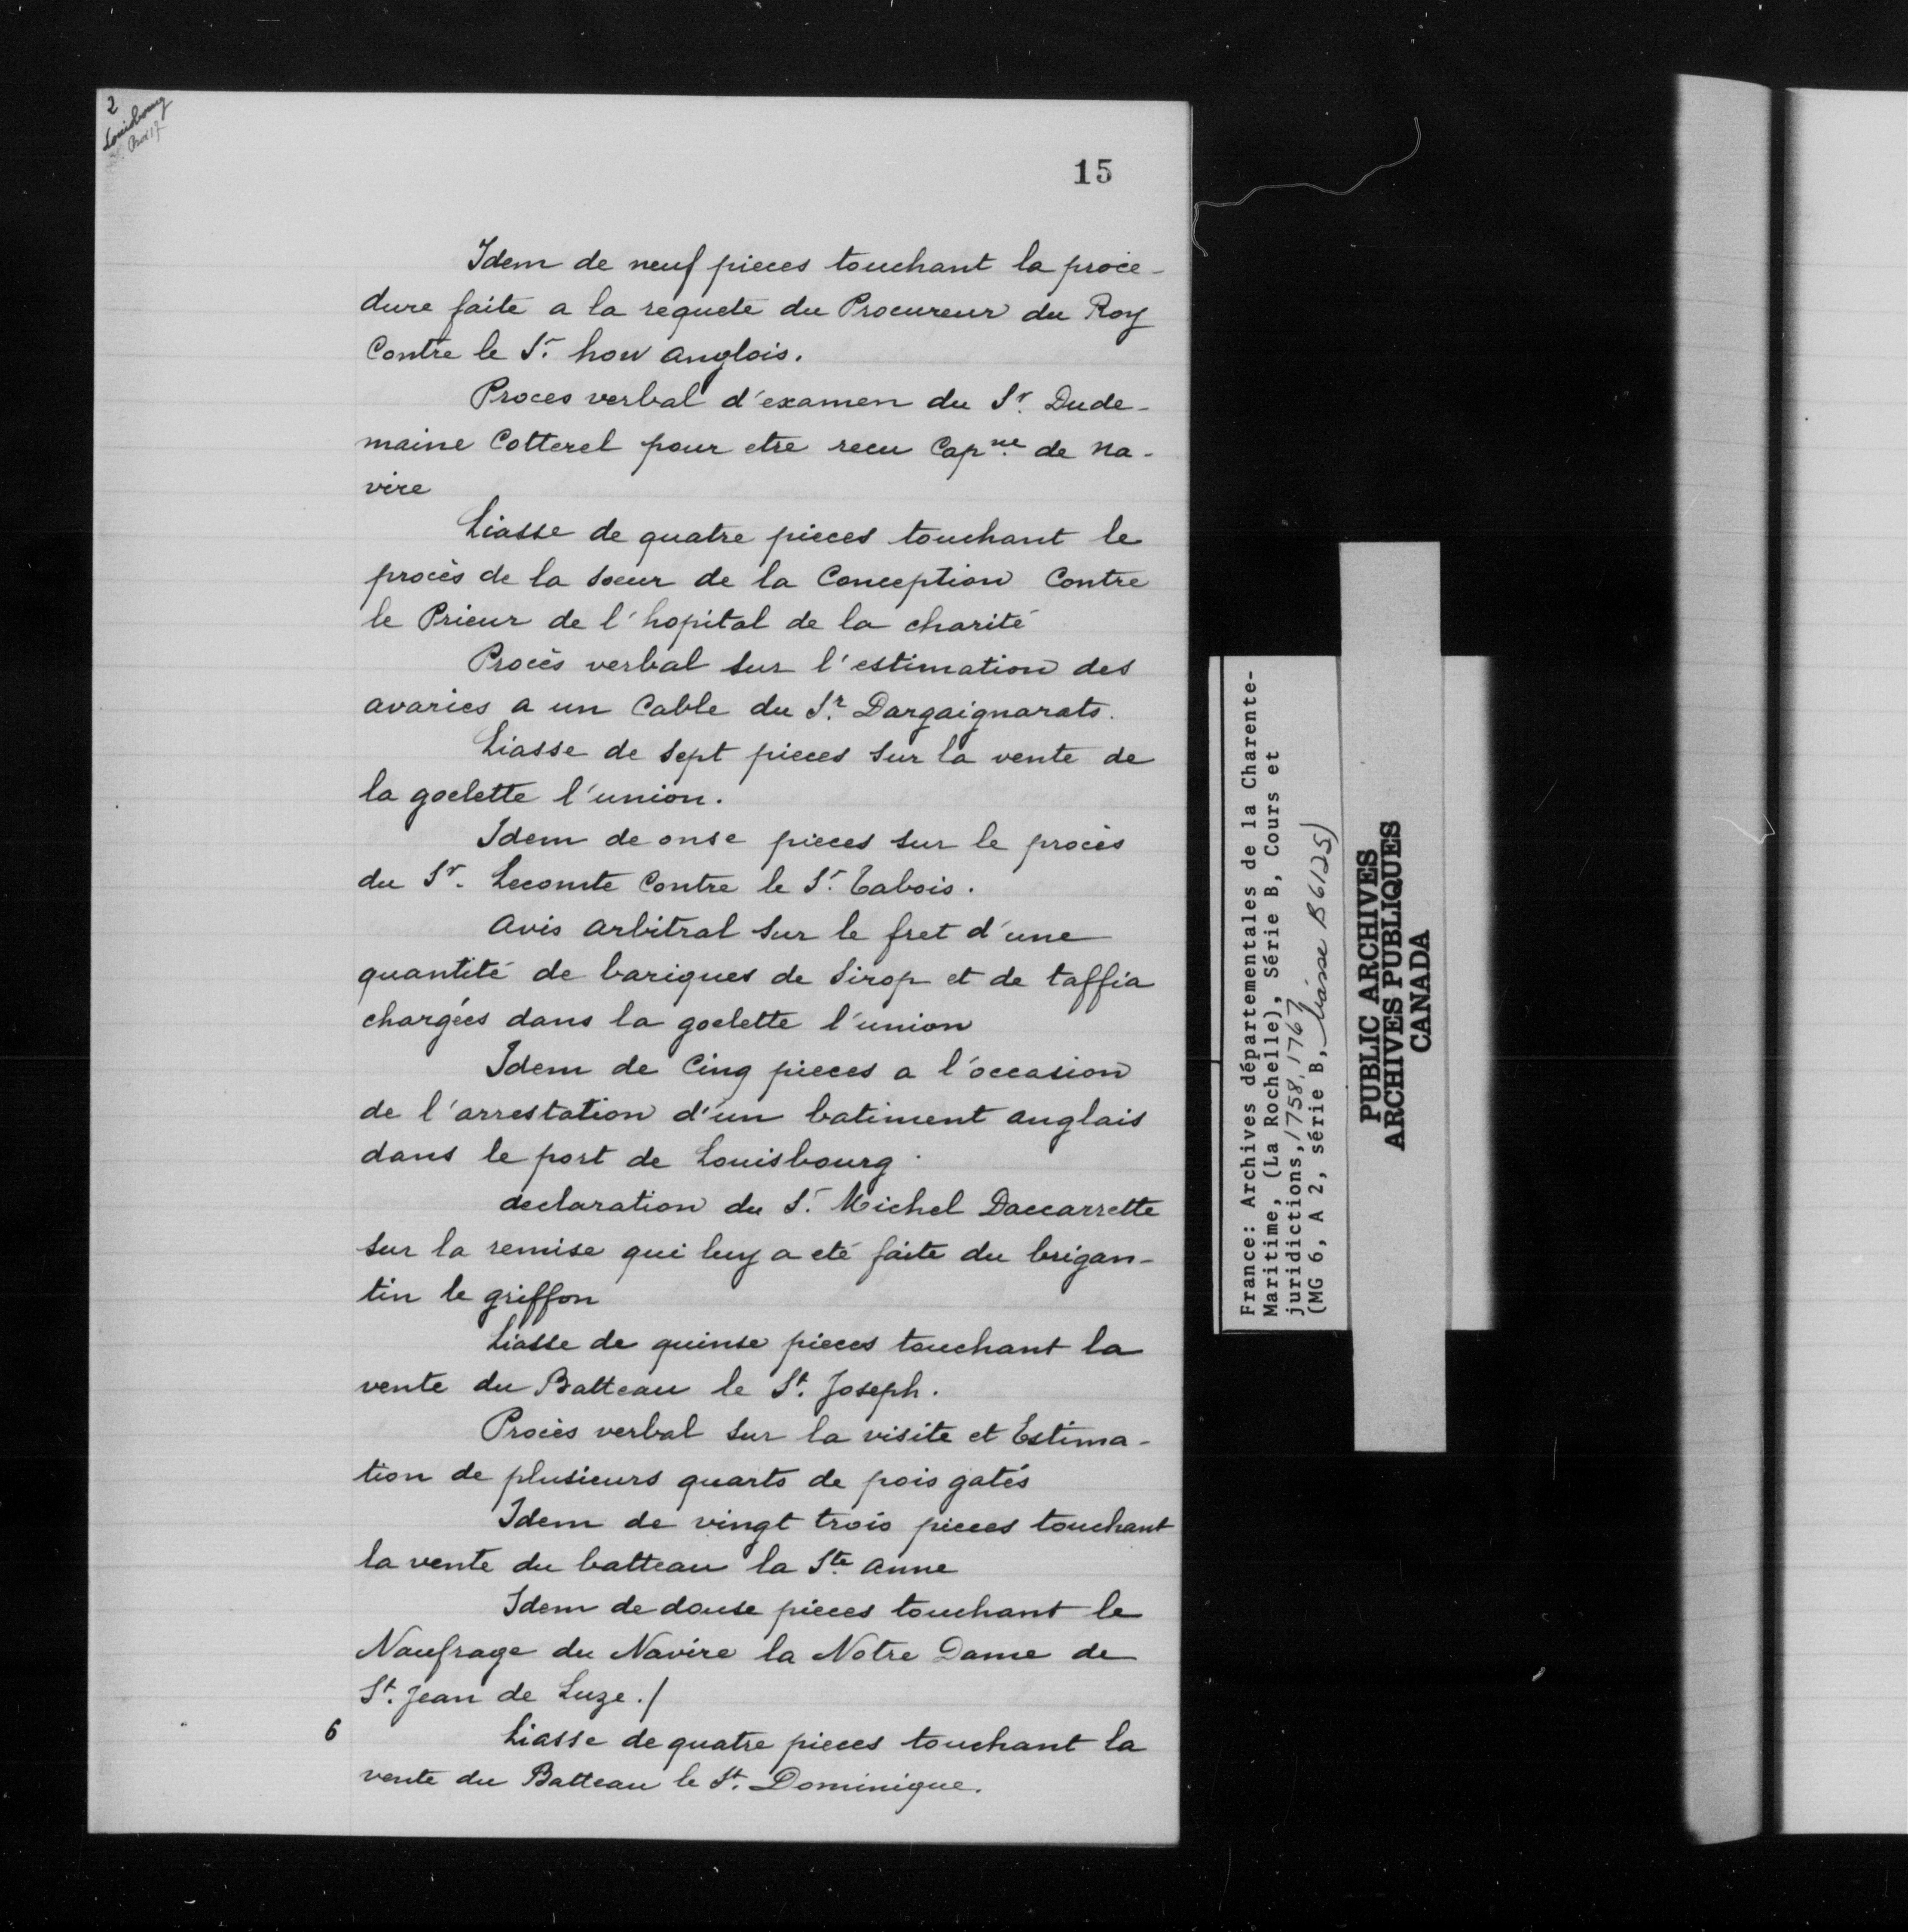 2
Louisbourg
15
Idem de neuf pieces touchant la proce-
dure faite a la requete du Procureur du Roy
Contre le Sr. how anglois.
Proces verbal d'examen du Sr. Dude-
maine Cotterel pour etre recu Capne. de na-
vire
Liasse de quatre pieces touchant le
procès de la soeur de la Conception Contre
le Prieur de l'hopital de la charité
Procès verbal sur l'estimation des
avaries a un Cable du Sr. Dargaignarats.
Liasse de sept pieces sur la vente de
la goelette l'union.
Idem de onse pieces sur le procès
du Sr. Lecomte Contre le Sr. Tabois.
Avis arbitral sur le fret d'une
quantité de bariques de Sirop et de taffia
chargées dans la goelette l'union
Idem de Cinq pieces a l'occasion
de l'arrestation d'un batiment anglais
dans le port de Louisbourg.
declaration du Sr. Michel Daccarrette
sur la remise qui luy a eté faite du brigan-
tin le griffon
Liasse de quinse pieces touchant la
vente du Batteau le St. Joseph.
Procès verbal sur la visite et Estima-
tion de plusieurs quarts de pois gatés
Idem de vingt trois pieces touchant
la vente du batteau la Ste. anne
Idem de douse pieces touchant le
Naufrage du Navire la Notre Dame de
St. Jean de Luze./
6
Liasse de quatre pieces touchant la
vente du Batteau le St. Dominique.
France: Archives départementales de la Charente-
Maritime, (La Rochelle), Série B, Cours et
juridictions, 1758, 1767
(MG 6, A 2, série B, liasse B6125)
PUBLIC ARCHIVES
ARCHIVES PUBLIQUES
CANADA